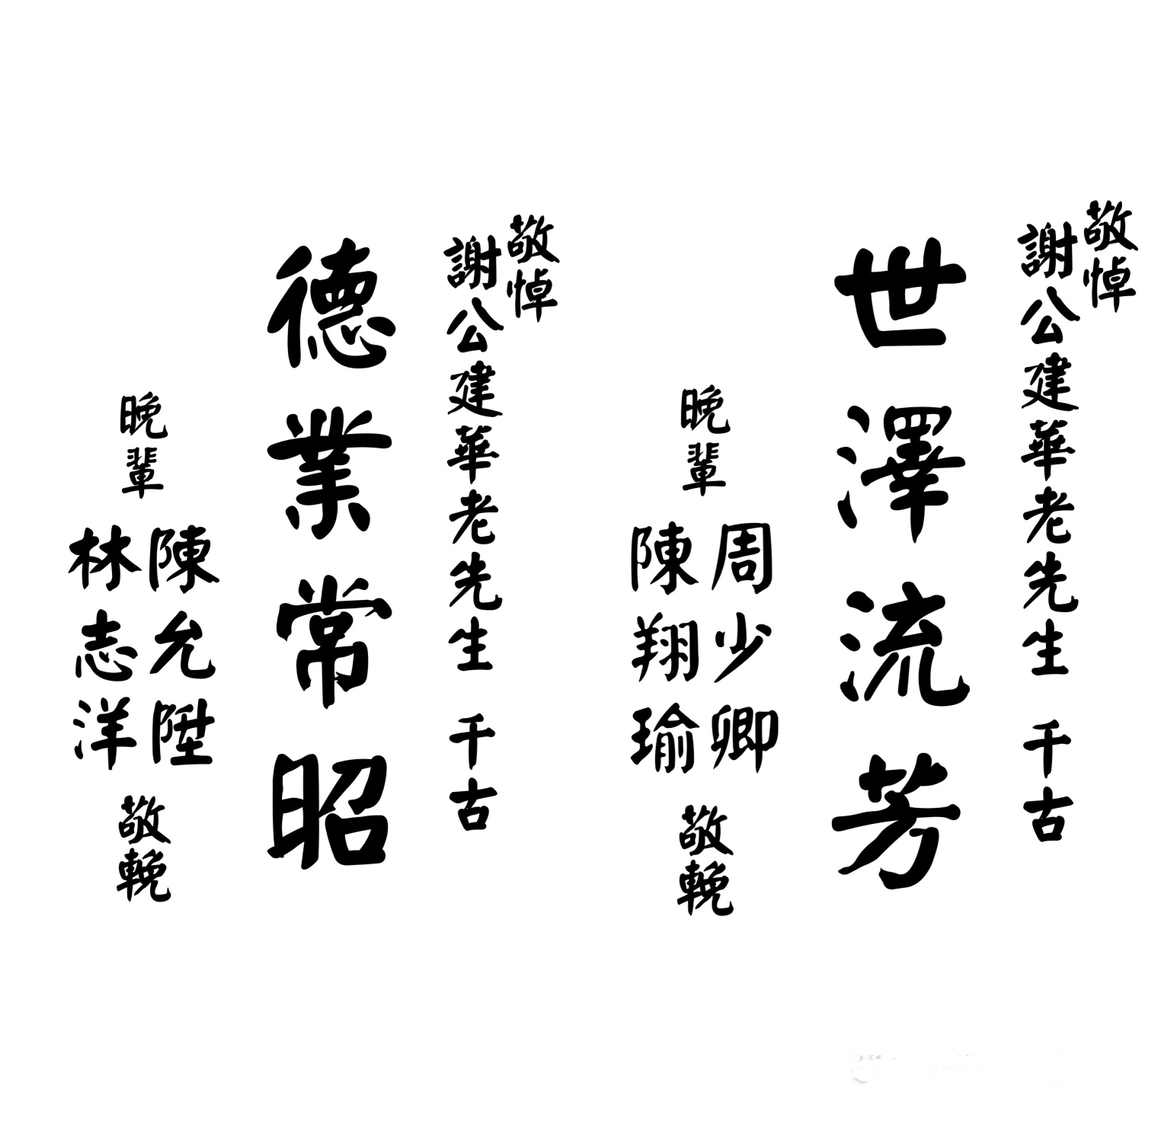 敬悼
謝公建華老先生 千古
世澤流芳
晚輩
周少卿
陳翔瑜
敬輓
敬悼
謝公建華老先生 千古
德業常昭
晚輩
陳允陞
林志洋
敬輓